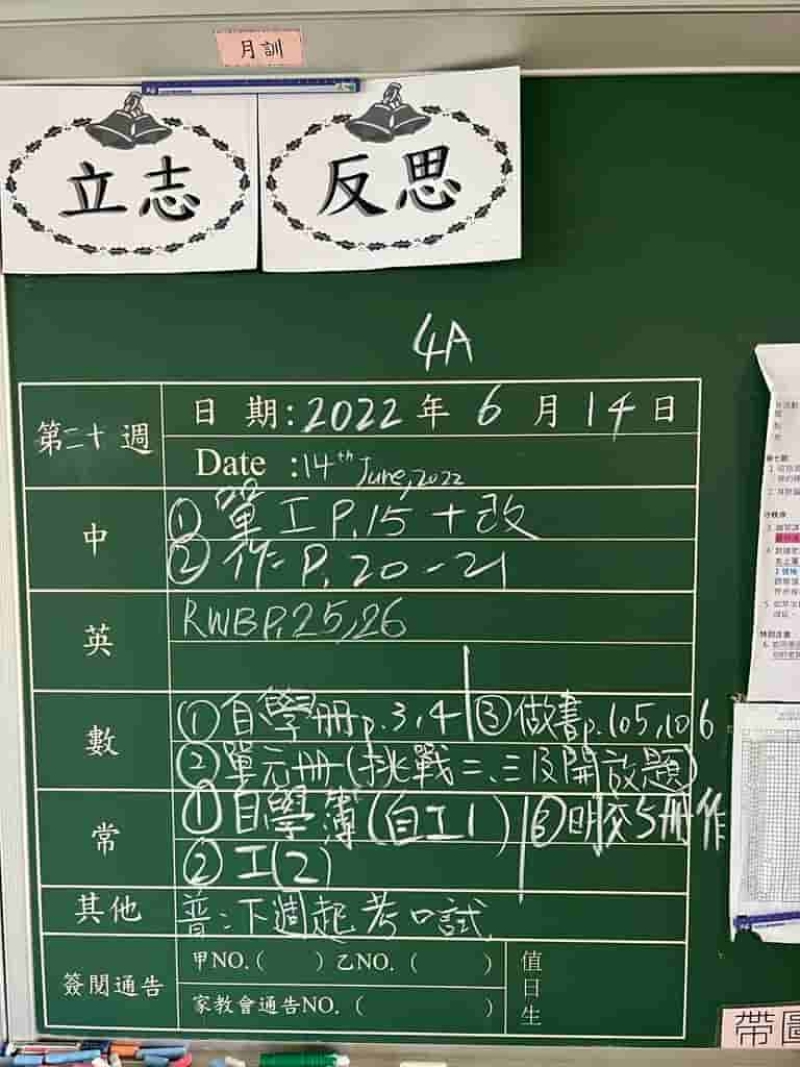 月訓
立志
反思
4A
第二十週
日 期:2022 年 6 月 14 日
Date :14th June, 2022
中
① 單工 P.15 + 改
② 作 P.20-21
英
RWB P.25,26
數
① 自學册 p.3,4
③ 做書 p.105,106
② 單元册(挑戰二、三及開放題)
常
① 自學簿(自工1)
③ 明交5册作
② 工(2)
其他
普:下週起考口試
簽閱通告
甲NO.( ) 乙NO.( )
家教會通告NO.( )
值日生
帶